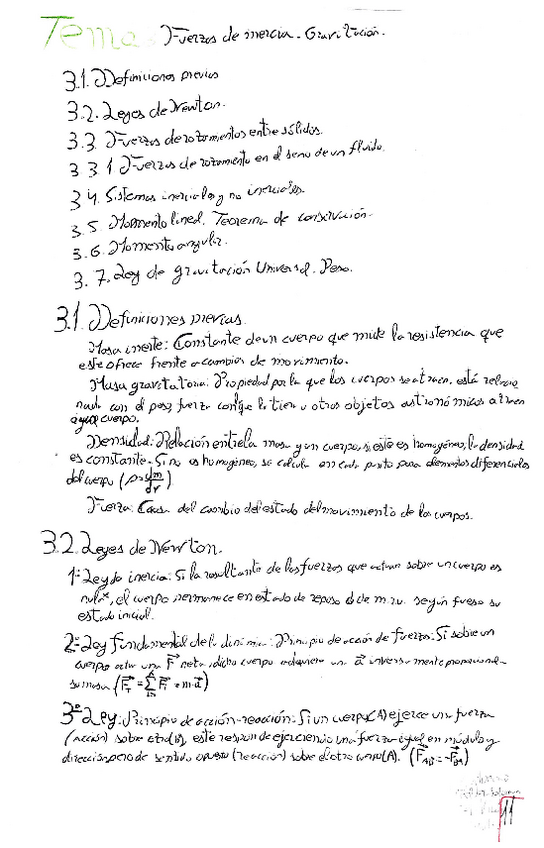 Tema Fuerzas de inercia - Gravitación.
3.1. Definiciones previas
3.2. Leyes de Newton.
3.3. Fuerzas de rozamientos entre sólidos.
3 3 1 Fuerzas de rozamiento en el seno de un fluido.
3 4. Sistemas inerciales y no inerciales.
3.5. Momento lineal. Teorema de conservación.
3.6. Momento angular.
3.7. Ley de gravitación Universal. Peso.
3.1. Definiciones previas.
Masa inerte: Constante de un cuerpo que mide la resistencia que
este ofrece frente a cambios de movimiento.
Masa gravitatoria: Propiedad por la que los cuerpos se atraen. está relacio
nada con el peso, fuerza con que la tierra u otros objetos astronómicos atraen
cuerpo.
Densidad: Relación entre la masa y un cuerpo, si este es homogéneo, la densidad
es constante. Si no es homogéneo, se calcula en cada punto para elementos diferenciales
del cuerpo (ρ=dm/dv)
Fuerza: Causa del cambio del estado del movimiento de los cuerpos.
3.2. Leyes de Newton.
1ª Ley de inercia: Si la resultante de las fuerzas que actúan sobre un cuerpo es
nula, el cuerpo permanece en estado de reposo ó de m.r.u. según fuese su
estado inicial.
2ª Ley fundamental de la dinámica: Principio de acción de fuerza: Si sobre un
cuerpo actúa una F neta, dicho cuerpo adquiere un a inversamente proporcional
su masa
3ª Ley: Principio de acción-reacción: Si un cuerpo (A) ejerce una fuerza
(acción) sobre otro (B), este responde ejerciendo una fuerza igual en módulo y
dirección pero de sentido opuesto (reacción) sobre el otro cuerpo (A). (F AB = -F BA)